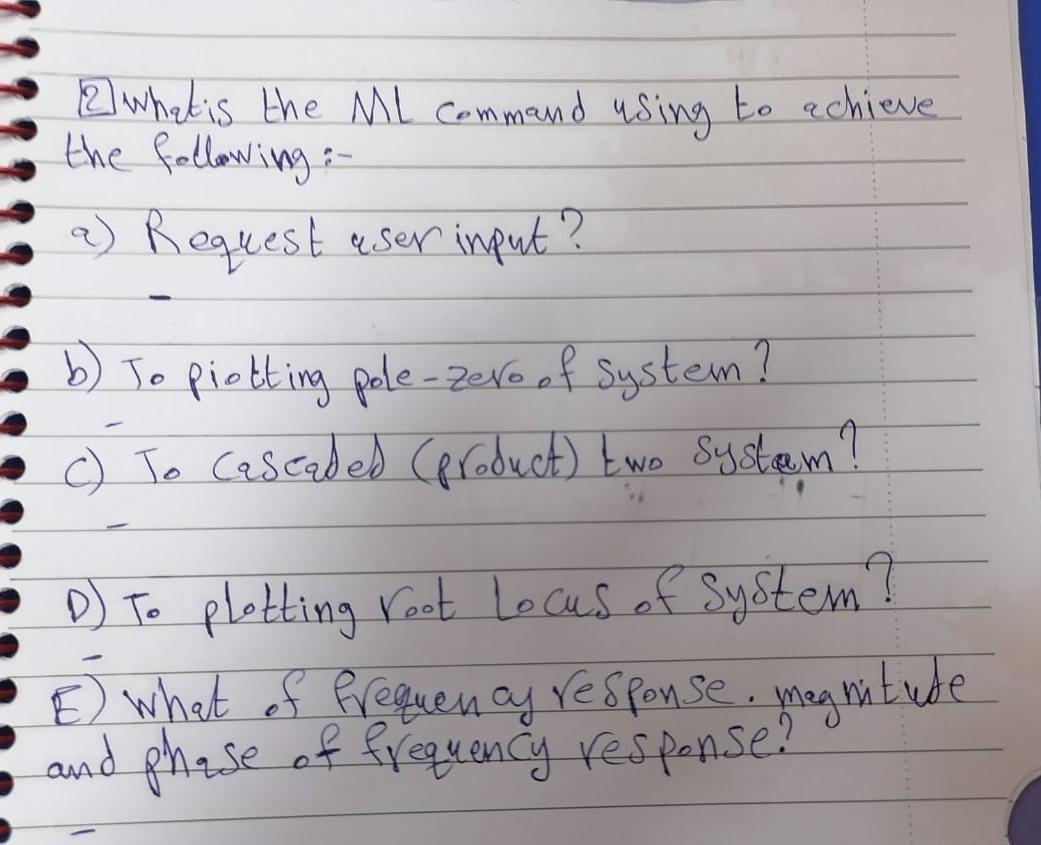 2 What is the ML command using to achieve
the following :-
a) Request user input?
-
b) To piotting pole-zero of system?
-
C) To Cascaded (product) two system?
-
D) To plotting root Locus of System?
-
E) What of frequency response. magnitude
and phase of frequency response?
-